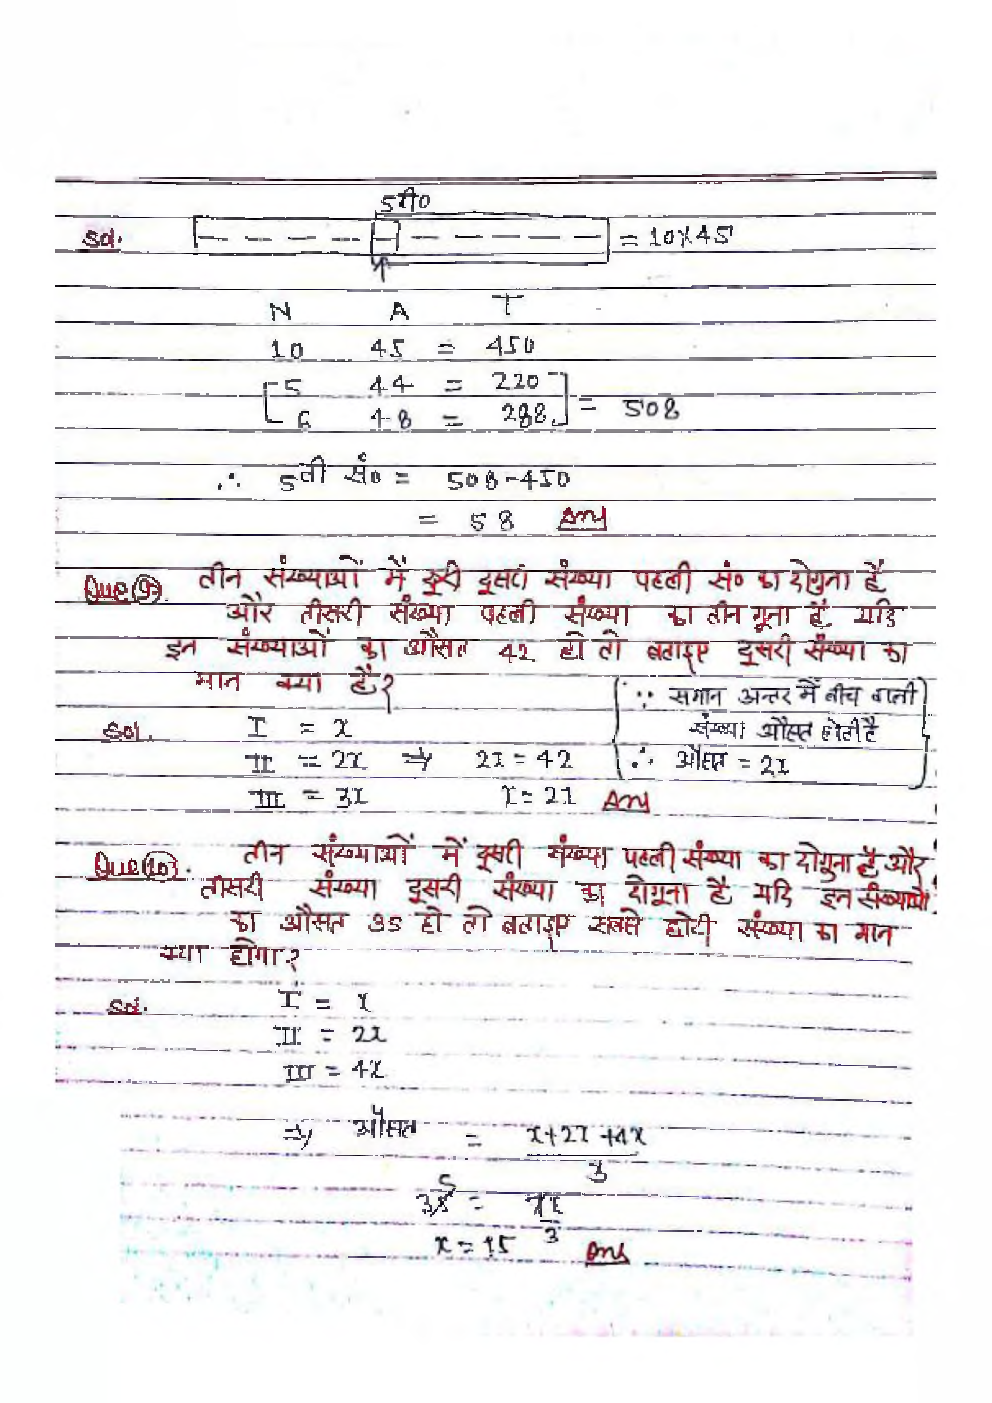 5वी सं०
Sol. = 10×45
N A T
10 45 = 450
5 44 = 220
6 48 = 288 = 508
∴ 5वी सं० = 508-450
= 58 Ans
Que(9). तीन संख्याओं में दूसरी संख्या पहली सं० का दोगुना है
और तीसरी संख्या पहली संख्या का तीन गुना है यदि
इन संख्याओं का औसत 42 हो तो बताइए दूसरी संख्या का
मान क्या है?
∵ समान अन्तर में बीच वाली
Sol. I = x संख्या औसत होती है
II = 2x ⇒ 2x = 42 ∴ औसत = 2x
III = 3x x = 21 Ans
Que(10). तीन संख्याओं में दूसरी संख्या पहली संख्या का दोगुना है और
तीसरी संख्या दूसरी संख्या का दोगुना है यदि इन संख्याओं
का औसत 35 हो तो बताइए सबसे छोटी संख्या का मान
क्या होगा?
Sol. I = x
II = 2x
III = 4x
⇒ औसत = x+2x+4x
3
5
35 = 7x
3
x = 15 Ans